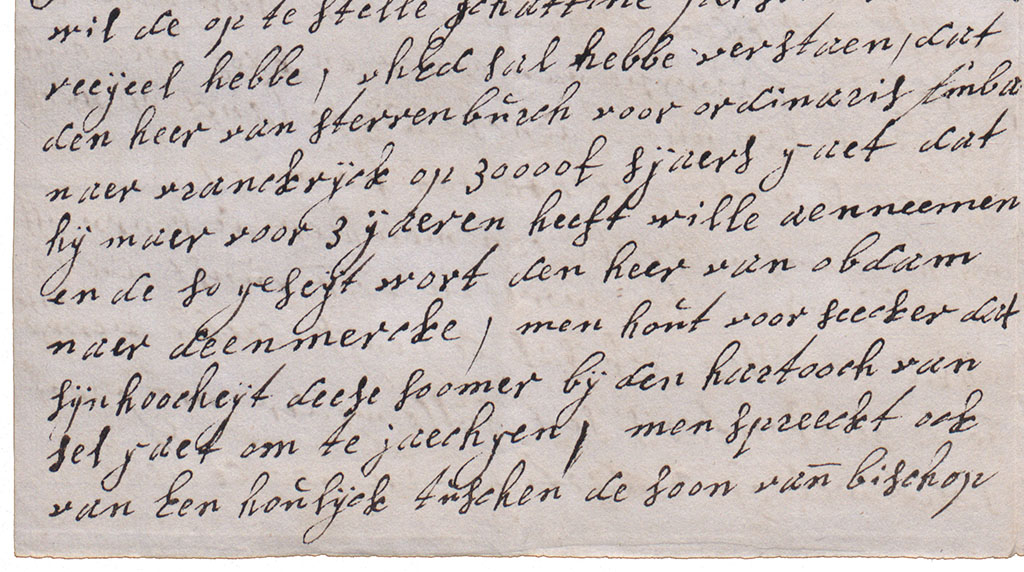 wil de op te stelle schattine
reeyeel hebbe, vhEd sal hebbe verstaen, dat
den heer van sterrenbŭrch voor ordinaris Amba
naer vranckryck op 30000f sjaers gaet dat
hij maer voor 3 jaeren heeft wille aenneemen
ende so geseyt wort den heer van obdam
naer deenmercke, men hoŭt voor seecker dat
sijn hoocheyt deese soomer bij den hartooch van
sel gaet om te jaechgen, men spreeckt ock
van een hoŭlyck tŭschen de soon van bischop